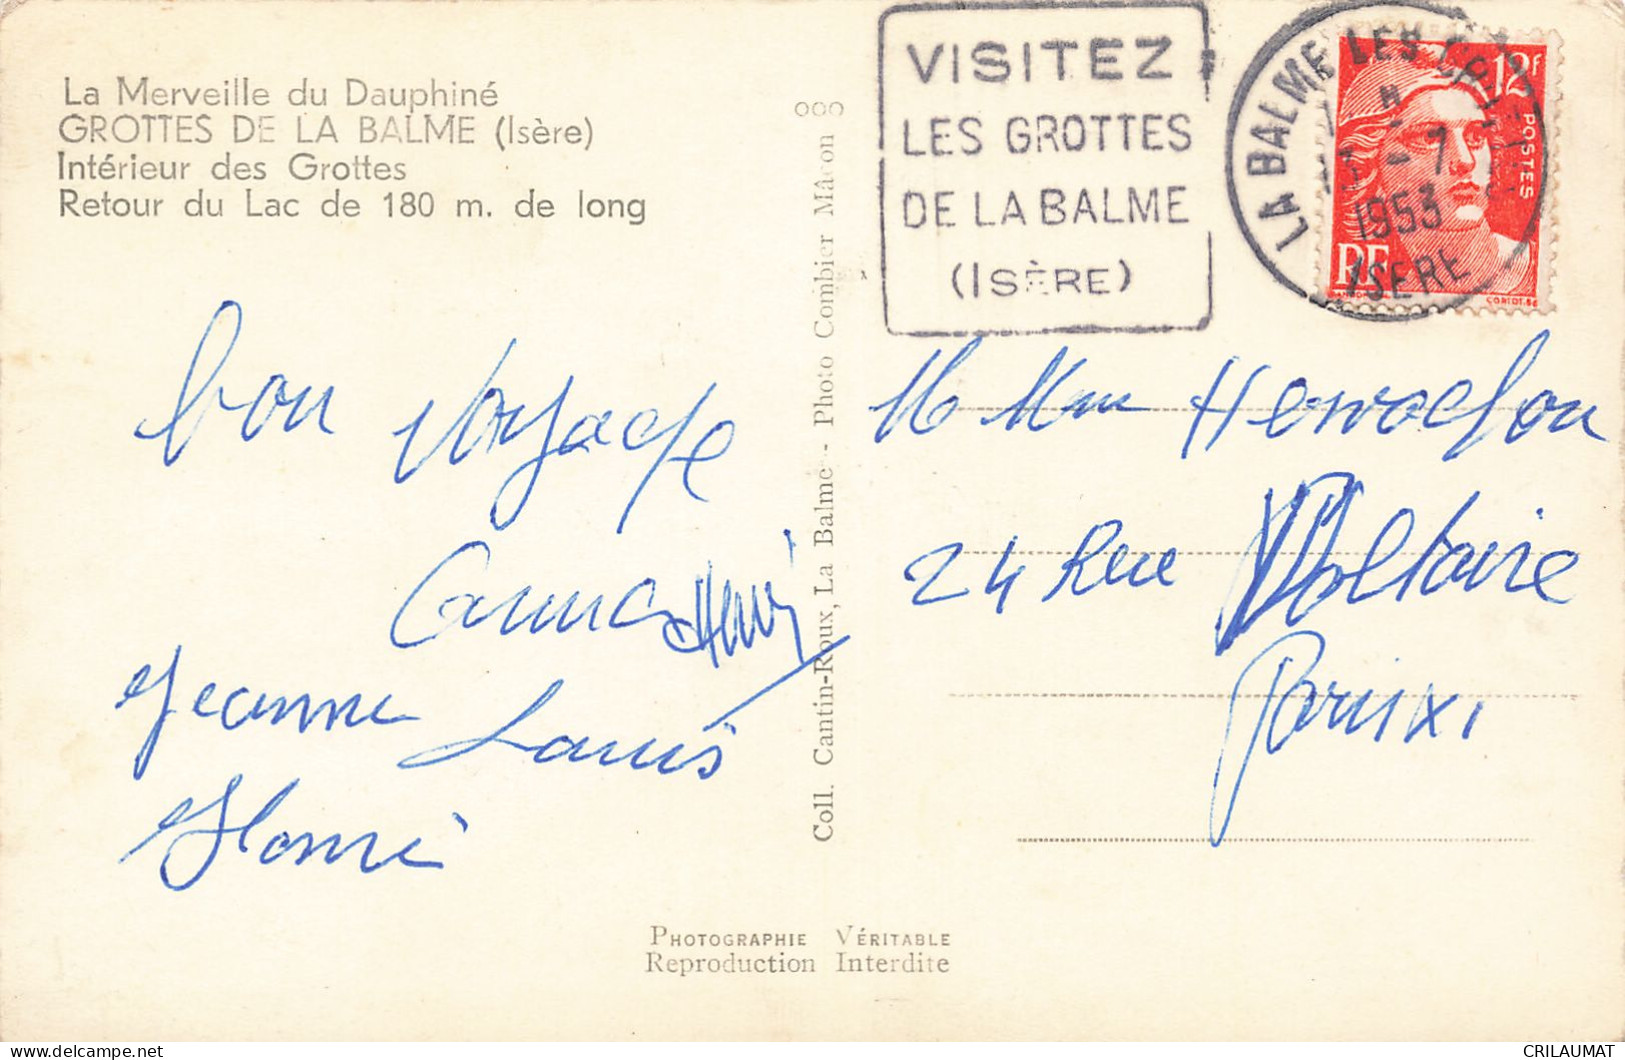 La Merveille du Dauphiné
GROTTES DE LA BALME (Isère)
Intérieur des Grottes
Retour du Lac de 180 m. de long
VISITEZ
LES GROTTES
DE LA BALME
(ISÈRE)
LA BALME LES GROTTES
-7
1953
ISERE
12F
POSTES
RF
bon voyage
Henri
Jeanne Louis
M Mme
24 Rue Voltaire
Paris XI
Coll. Cantin-Roux, La Balme - Photo Combier Mâcon
PHOTOGRAPHIE VÉRITABLE
Reproduction Interdite
CRILAUMAT